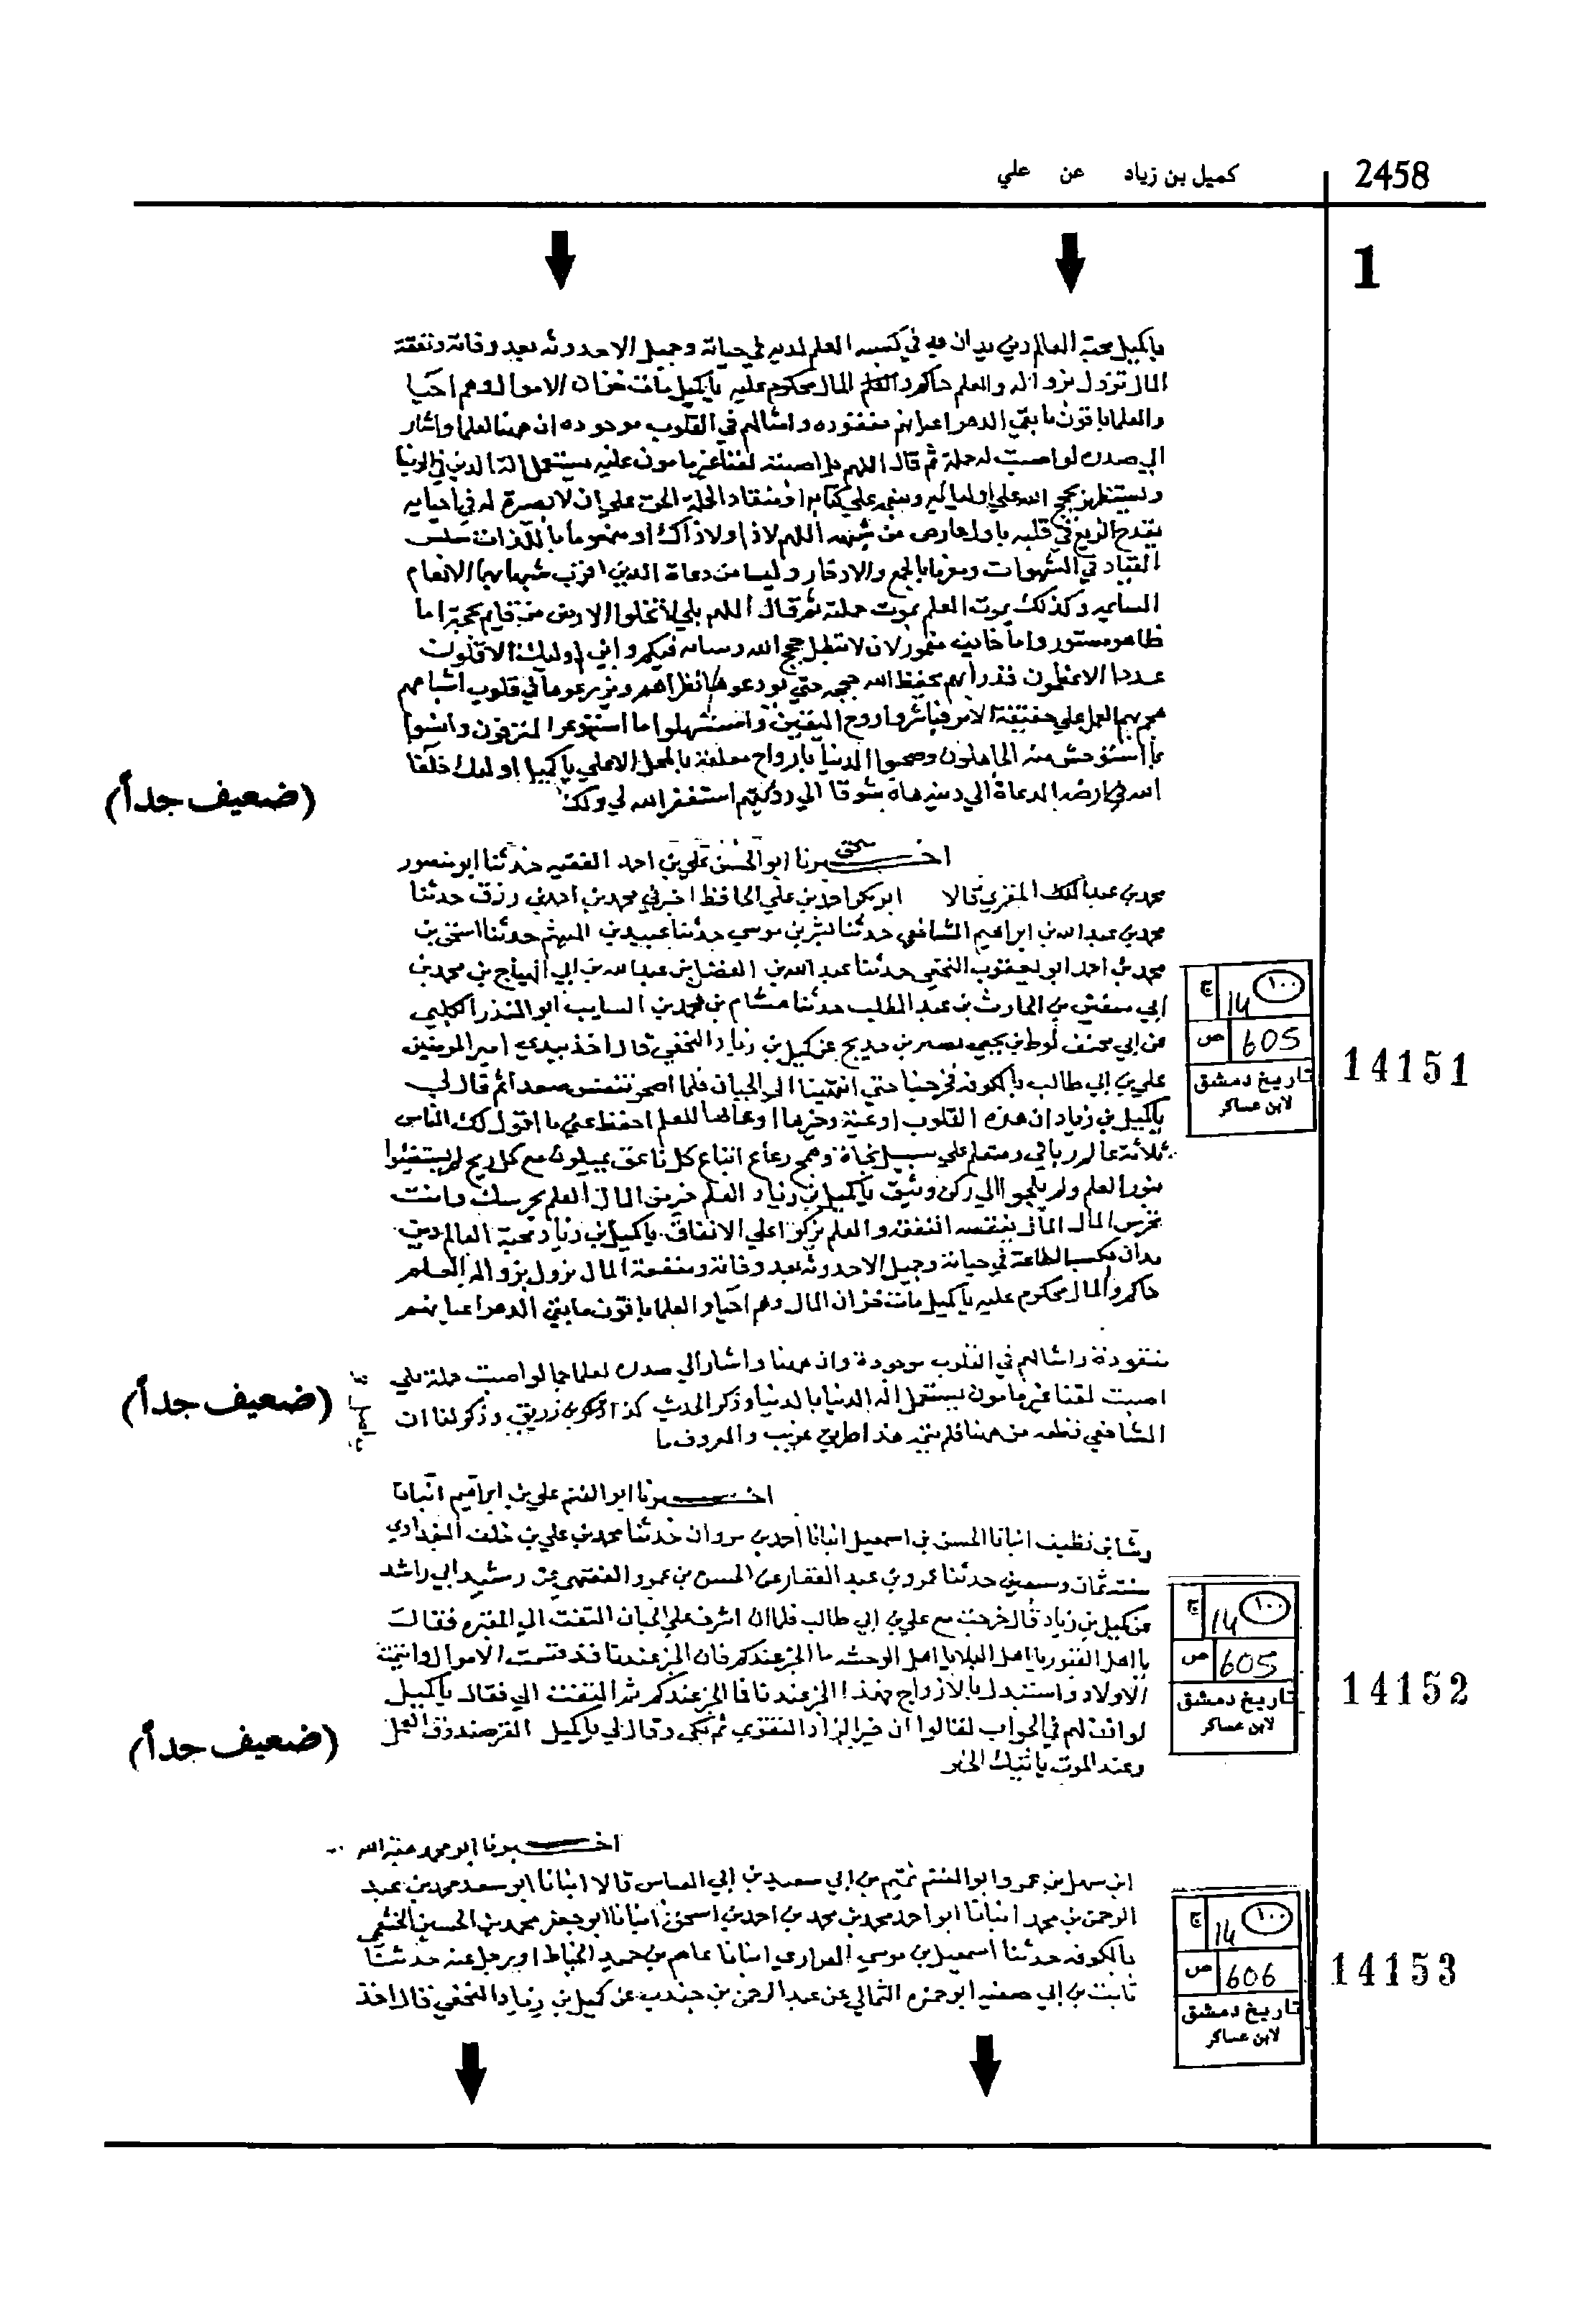 2458
كميل بن زياد عن علي
1
يا كميل محبة العالم دين يدان به في كسبه العلم لديه في حياته وجميل الاحدوثه بعد وفاته ونفقة
المال تزول بزواله والعلم حاكم والمال محكوم عليه يا كميل مات خزان الاموال وهم احيا
والعلما باقون ما بقي الدهر اعيانهم مفقوده وامثالهم في القلوب موجوده ان ههنا لعلما واشار
الي صدره لو اصبت له حملة ثم قال اللهم بلي اصبته لقنا غير مامون عليه يستعمل الة الدين في الدنيا
ويستظهر بحجج الله علي اوليايه وبنعمه علي كتابه او منقاد الحملة الحق علي ان لا بصيرة له في احيايه
يقدح الزيغ في قلبه باول عارض من شبهه اللهم لا ذا ولا ذاك او منهوما باللذات سلس
القياد في الشهوات ومغريا بالجمع والادخار وليسا من دعاة الدين اقرب شبها بهما الانعام
السايمه وكذلك يموت العلم بموت حملته ثم قال اللهم بلي لا تخلوا الارض من قايم بحجة اما
ظاهر مستور واما خايف مغمور لان لا تبطل حجج الله وبيناته فيكم واين اوليك الاقلون
عددا الاعظمون قدرا بهم يحفظ الله حججه حتي يودعوها نظراهم ويزرعوها في قلوب اشباههم
هجم بهم العلم علي حقيقة الامر فباشروا روح اليقين واستسهلوا ما استوعر المترفون وانسوا
بما استوحش منه الجاهلون وصحبوا الدنيا بارواح معلقة بالمحل الاعلي يا كميل اوليك خلفا
الله في ارضه الدعاة الي دينه هاه شوقا الي رؤيتهم استغفر الله لي ولك
(ضعيف جداً)
اخبرنا ابو الحسن علي بن احمد الفقيه حدثنا ابو منصور
محمد بن عبد الملك المقري قالا ابو بكر احمد بن علي الحافظ اخبرني محمد بن احمد بن رزق حدثنا
محمد بن عبد الله بن ابراهيم الشافعي حدثنا بشر بن موسي حدثنا عبيد بن الهيثم حدثنا اسحق بن
محمد بن احمد ابو يعقوب النخعي حدثنا عبد الله بن الفضل بن عبد الله بن ابي الهياج بن محمد بن
ابي سفين بن الحارث بن عبد المطلب حدثنا هشام بن محمد بن السايب ابو المنذر الكلبي
عن ابي مخنف لوط بن يحيي عن فضيل بن خديج عن كميل بن زياد النخعي قال اخذ بيدي امير المومنين
علي بن ابي طالب بالكوفه فخرجنا حتي انتهينا الي الجبان فلما اصحر تنفس صعدا ثم قال لي
يا كميل بن زياد ان هذه القلوب اوعية وخيرها اوعاها للعلم احفظ عني ما اقول لك الناس
ثلاثة عالم رباني ومتعلم علي سبيل نجاة وهمج رعاع اتباع كل ناعق يميلون مع كل ريح لم يستضيئوا
بنور العلم ولم يلجوا الي ركن وثيق يا كميل بن زياد العلم خير من المال العلم يحرسك وانت
تحرس المال المال ينقصه النفقة والعلم يزكوا علي الانفاق يا كميل بن زياد محبة العالم دين
يدان يكسبه الطاعة في حياته وجميل الاحدوثه بعد وفاته ومنفعة المال يزول بزواله العلم
حاكم والمال محكوم عليه يا كميل مات خزان المال وهم احيا والعلما باقون ما بقي الدهر اعيانهم
مفقودة وامثالهم في القلوب موجودة وان ههنا واشار الي صدره لعلما جما لو اصبت حملة بلي
اصبت لقنا غير مامون يستعمل الة الدنيا بالدنيا وذكر الحديث كذا ذكره بن زريق وذكر لنا ان
الشافعي قطعه من ههنا فلم يتمه هذا طريق غريب والمعروف ما
(ضعيف جداً)
ج ١٠٠ 14
ص 605
تاريخ دمشق
لابن عساكر
14151
اخبرنا ابو القسم علي بن ابراهيم انبانا
رشا بن نظيف انبانا الحسن بن اسمعيل انبانا احمد بن مروان حدثنا محمد بن علي بن خلف البغدادي
سنة ثمان وسبعين حدثنا عمرو بن عبد الغفار عن الحسن بن عمرو الفقيمي عن رشيد ابي راشد
عن كميل بن زياد قال خرجت مع علي بن ابي طالب فلما ان اشرف علي الجبان التفت الي المقبره فقال
يا اهل القبور يا اهل البلا يا اهل الوحشه ما الخبر عندكم فان الخبر عندنا قد قسمت الاموال وايتمت
الاولاد واستبدل بالازواج فهذا الخبر عندنا فما الخبر عندكم ثم التفت الي فقال يا كميل
لو اذن لهم في الجواب لقالوا ان خير الزاد التقوي ثم بكي وقال لي يا كميل القبر صندوق العمل
وعند الموت ياتيك الخبر
(ضعيف جداً)
ج ١٠٠ 14
ص 605
تاريخ دمشق
لابن عساكر
14152
اخبرنا ابو محمد هبة الله
ابن سهل بن عمر وابو القسم تميم بن ابي سعيد بن ابي العباس قالا انبانا ابو سعد محمد بن عبد
الرحمن بن محمد انبانا ابو احمد محمد بن محمد بن احمد بن اسحق انبانا ابو جعفر محمد بن الحسين الخثعمي
بالكوفه حدثنا اسمعيل بن موسي الفزاري انبانا عاصم بن حميد الخياط او رجل عنه حدثنا
ثابت بن ابي صفيه ابو حمزه الثمالي عن عبد الرحمن بن جندب عن كميل بن زياد النخعي قال اخذ
ج ١٠٠ 14
ص 606
تاريخ دمشق
لابن عساكر
14153